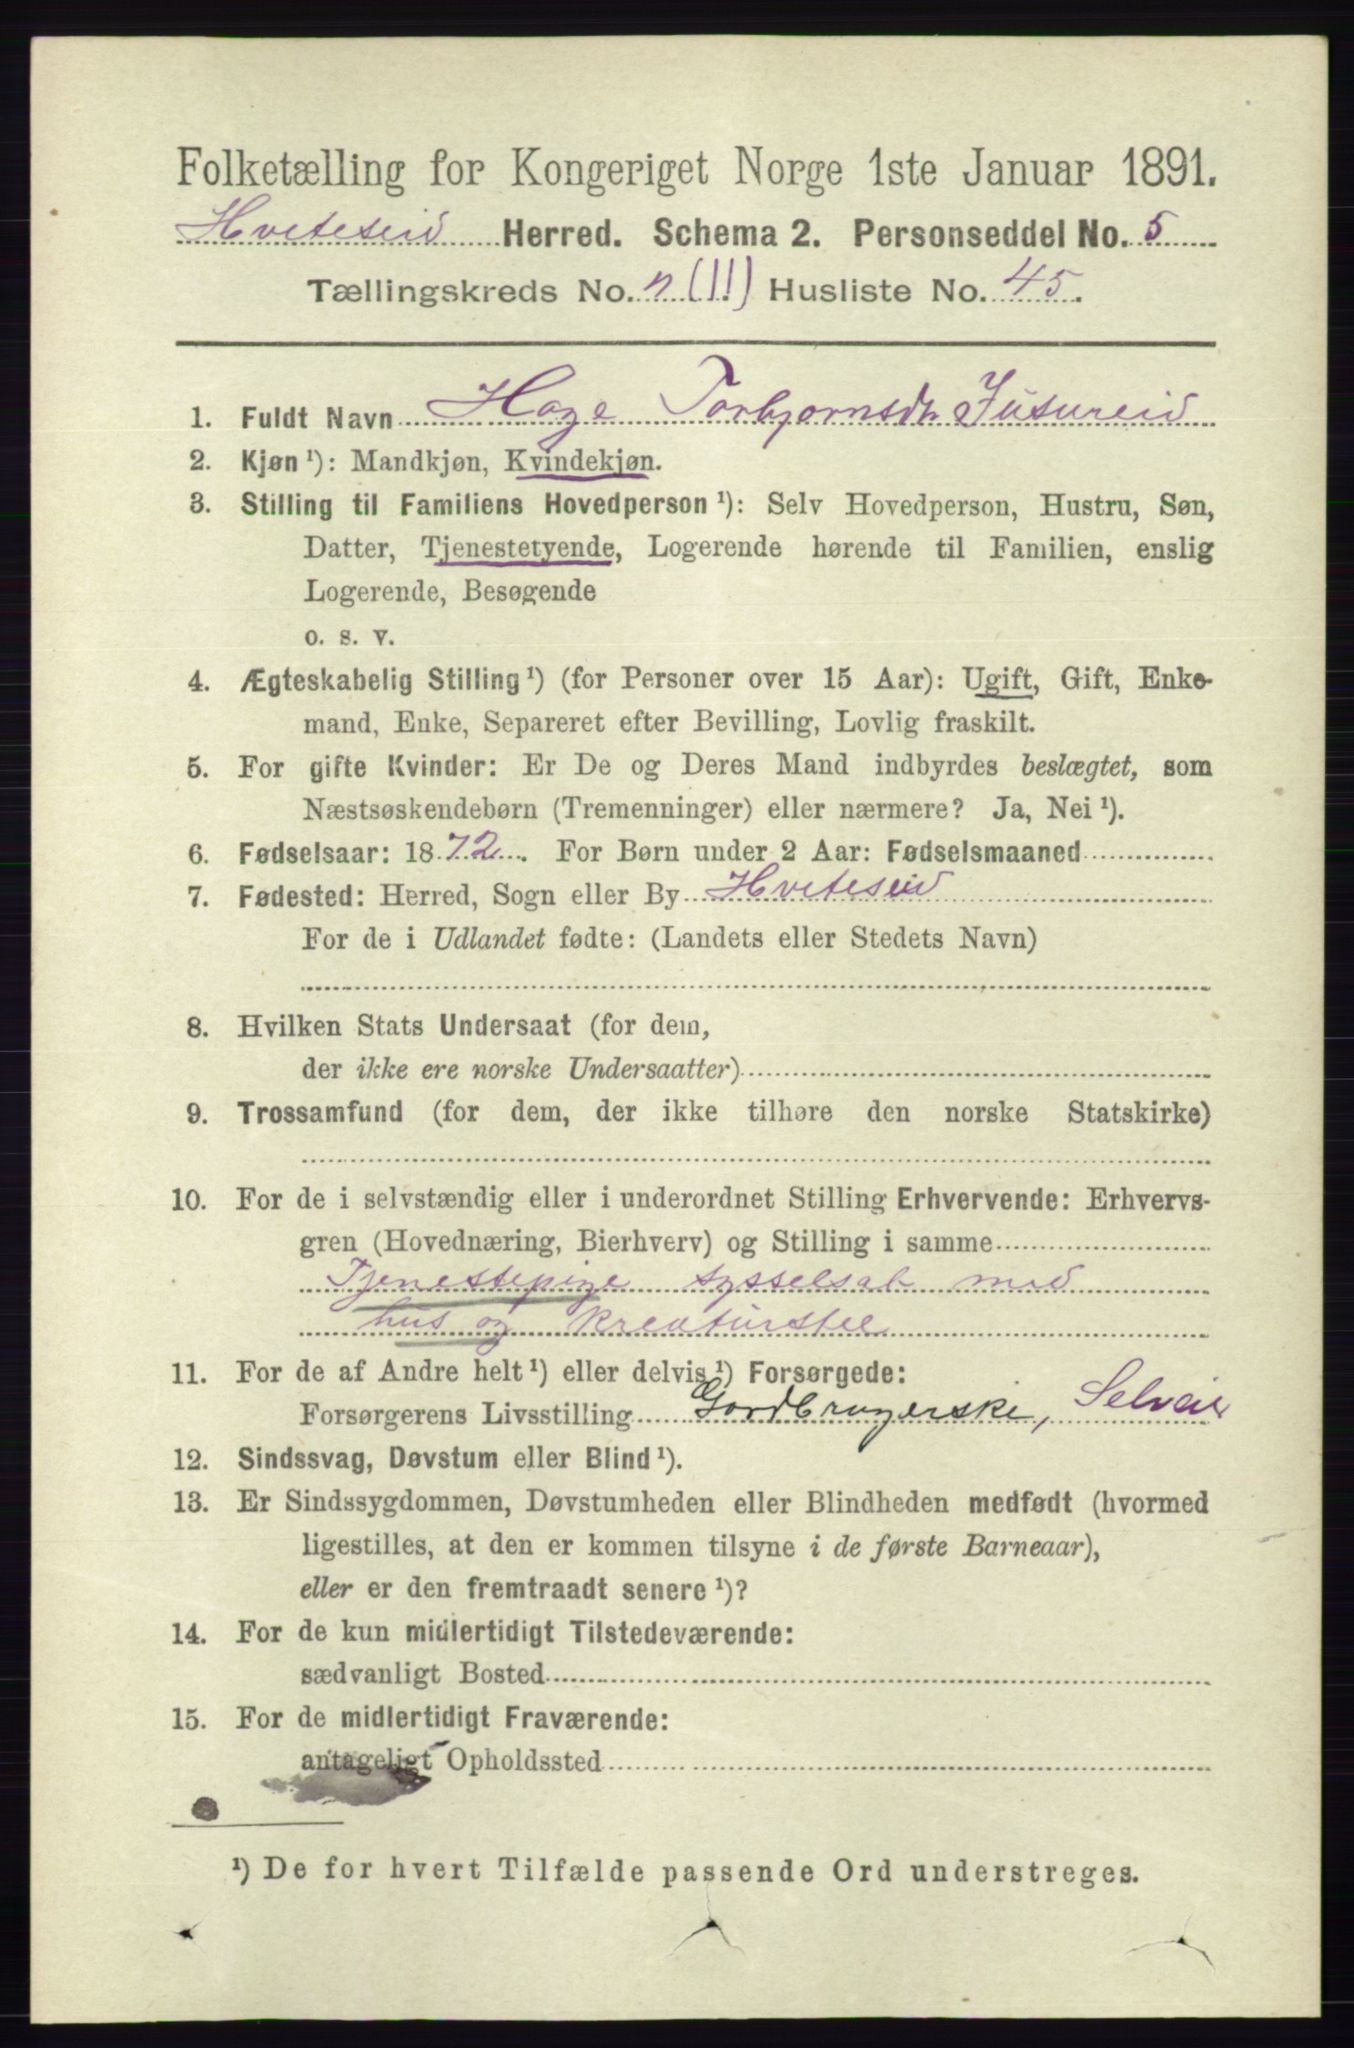 Folketælling for Kongeriget Norge 1ste Januar 1891.
Hviteseid Herred. Schema 2. Personseddel No. 5
Tællingskreds No. n (11) Husliste No. 45.
1. Fuldt Navn Hage Torbjørnsdtr Jusureid
2. Kjøn ¹): Mandkjøn, Kvindekjøn.
3. Stilling til Familiens Hovedperson ¹): Selv Hovedperson, Hustru, Søn,
Datter, Tjenestetyende, Logerende hørende til Familien, enslig
Logerende, Besøgende
o. s. v.
4. Ægteskabelig Stilling ¹) (for Personer over 15 Aar): Ugift, Gift, Enke-
mand, Enke, Separeret efter Bevilling, Lovlig fraskilt.
5. For gifte Kvinder: Er De og Deres Mand indbyrdes beslægtet, som
Næstsøskendebørn (Tremenninger) eller nærmere? Ja, Nei ¹).
6. Fødselsaar: 1872. For Børn under 2 Aar: Fødselsmaaned
7. Fødested: Herred, Sogn eller By Hviteseid
For de i Udlandet fødte: (Landets eller Stedets Navn)
8. Hvilken Stats Undersaat (for dem,
der ikke ere norske Undersaatter)
9. Trossamfund (for dem, der ikke tilhøre den norske Statskirke)
10. For de i selvstændig eller i underordnet Stilling Erhvervende: Erhvervs-
gren (Hovednæring, Bierhverv) og Stilling i samme
Tjenestepige sysselsat med
hus og kreaturstel
11. For de af Andre helt ¹) eller delvis ¹) Forsørgede:
Forsørgerens Livsstilling Gardbrugerske, Selveier
12. Sindssvag, Døvstum eller Blind ¹).
13. Er Sindssygdommen, Døvstumheden eller Blindheden medfødt (hvormed
ligestilles, at den er kommen tilsyne i de første Barneaar),
eller er den fremtraadt senere ¹)?
14. For de kun midlertidigt Tilstedeværende:
sædvanligt Bosted
15. For de midlertidigt Fraværende:
antageligt Opholdssted
¹) De for hvert Tilfælde passende Ord understreges.